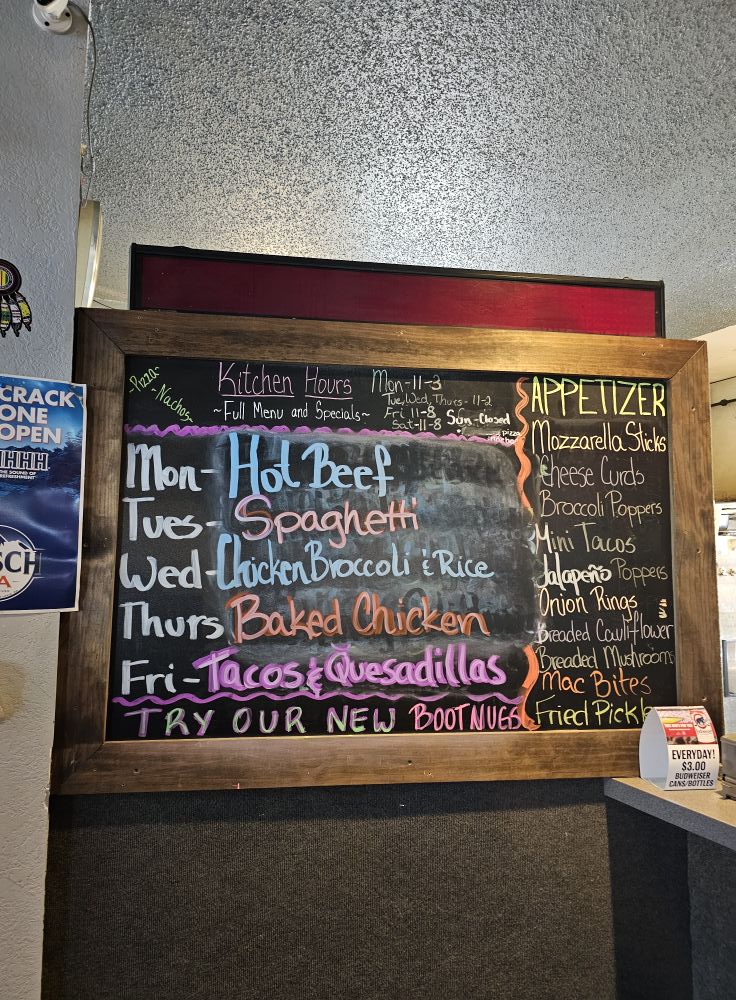 CRACK
ONE
OPEN
HHHH
THE SOUND OF
REFRESHMENT
SCH
A
-Pizza-
-Nachos-
Kitchen Hours
~Full Menu and Specials~
Mon-11-3
Tue, Wed, Thurs- 11-2
Fri 11-8 Sun-Closed
Sat-11-8
pizza
Mon- Hot Beef
Tues- Spaghetti
Wed- Chicken Broccoli & Rice
Thurs Baked Chicken
Fri- Tacos & Quesadillas
TRY OUR NEW BOOTNUGS
APPETIZER
Mozzarella Sticks
Cheese Curds
Broccoli Poppers
Mini Tacos
Jalapeño Poppers
Onion Rings
Breaded Cauliflower
Breaded Mushrooms
Mac Bites
Fried Pickl
EVERYDAY!
$3.00
BUDWEISER
CANS/BOTTLES